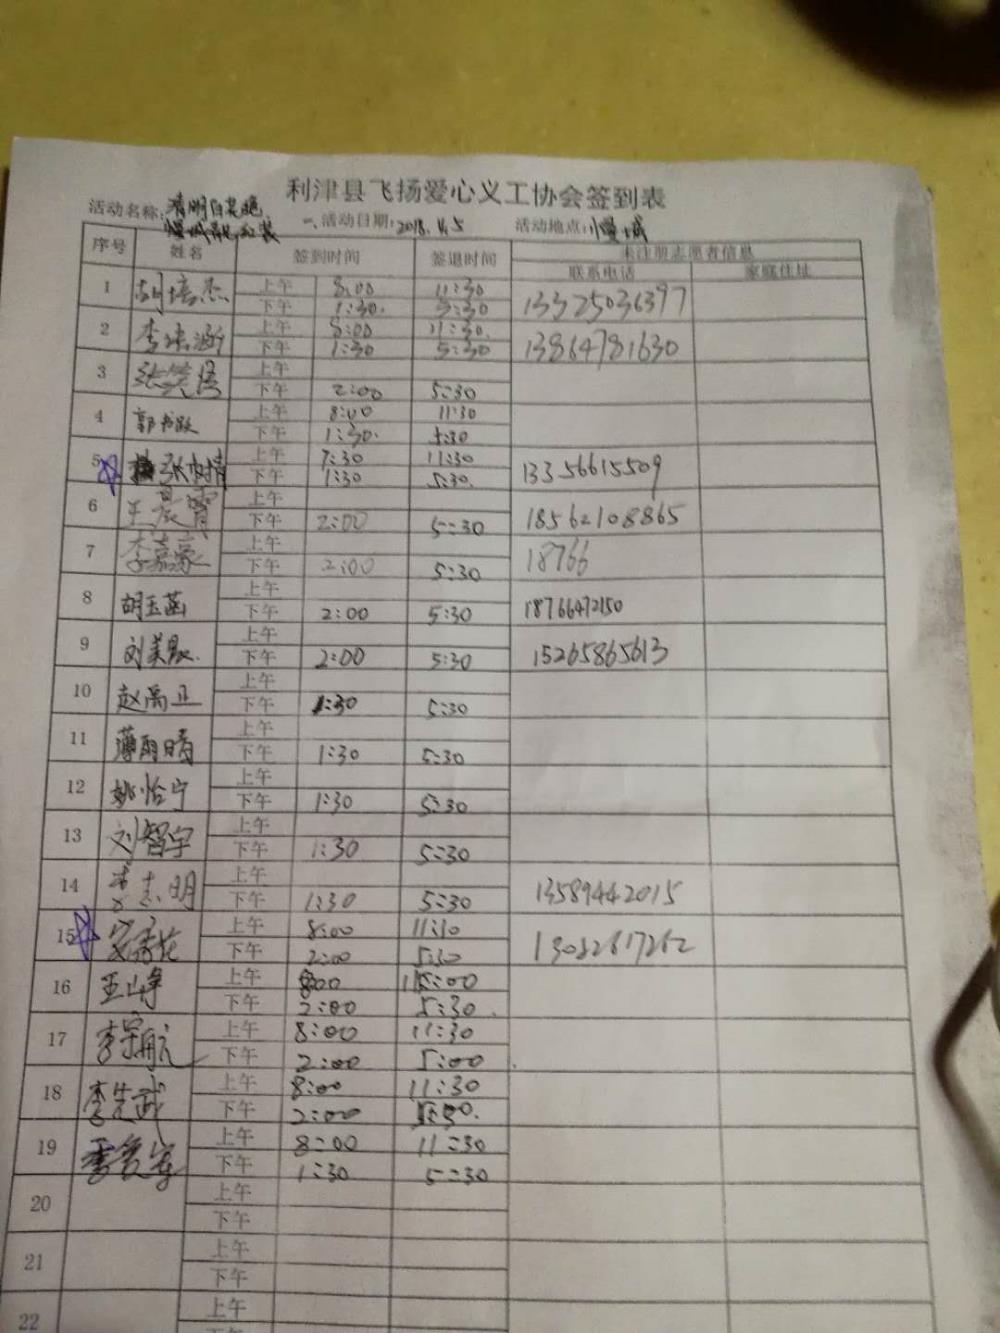 利津县飞扬爱心义工协会签到表
活动名称: 清明白
活动日期: 2018.4.5 活动地点: 慢城
序号 姓名 签到时间 签退时间 未注册志愿者信息
联系电话 家庭住址
1 胡培杰 上午 8:00 11:30 13325036397
下午 1:30. 5:30
2 李 涵 上午 8:00 11:30. 13864781630
下午 1:30 5:30
3 张笑 上午
下午 2:00 5:30
4 郭书 上午 8:00 11:30
下午 1:30. 5:30
5 张 情 上午 7:30 11:30 13356615509
下午 1:30 5:30.
6 王晨霄 上午
下午 2:00 5:30 18562108865
7 李嘉豪 上午 18766
下午 2:00 5:30
8 胡玉菡 上午
下午 2:00 5:30 18766472150
9 刘美 上午
下午 2:00 5:30 15265865613
10 赵禹 上午
下午 1:30 5:30
11 薄雨晴 上午
下午 1:30 5:30
12 姚怡宁 上午
下午 1:30 5:30
13 刘智宇 上午
下午 1:30 5:30
14 志明 上午
下午 1:30 5:30 13589442015
15 上午 8:00 11:30
下午 2:00 5:30
16 王山 上午 8:00
下午 2:00 5:30.
17 李宗航 上午 8:00 11:30
下午 2:00 5:00
18 李先武 上午 8:00 11:30
下午 2:00
19 上午 8:00 11:30
下午 1:30 5:30
20 上午
下午
21 上午
下午
22 上午
下午